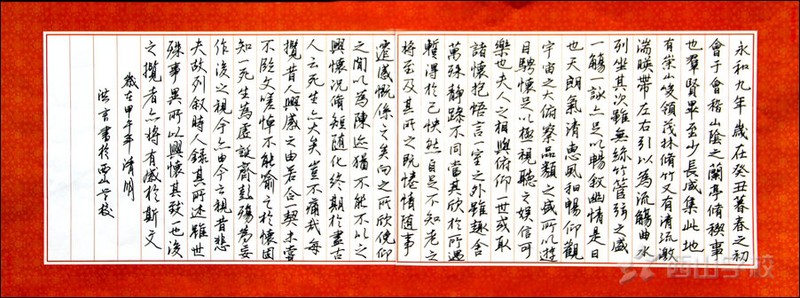 永和九年歲在癸丑暮春之初
會于會稽山陰之蘭亭脩稧事
也羣賢畢至少長咸集此地
有崇山峻領茂林脩竹又有清流激
湍暎帶左右引以為流觴曲水
列坐其次雖無絲竹管弦之盛
一觴一詠亦足以暢敘幽情是日
也天朗氣清惠風和暢仰觀
宇宙之大俯察品類之盛所以遊
目騁懷足以極視聽之娛信可
樂也夫人之相與俯仰一世或取
諸懷抱悟言一室之外雖趣舍
萬殊靜躁不同當其欣於所遇
暫得於己怏然自足不知老之
將至及其所之既惓情隨事
遷感慨係之矣向之所欣俛仰
之閒以為陳迹猶不能不以之
興懷況脩短隨化終期於盡古
人云死生亦大矣豈不痛哉每
攬昔人興感之由若合一契未嘗
不臨文嗟悼不能喻之於懷固
知一死生為虛誕齊彭殤為妄
作後之視今亦由今之視昔悲
夫故列敘時人錄其所述雖世
殊事異所以興懷其致一也後
之攬者亦將有感於斯文
歲在甲午年清明
洪言書於西山学校
西山学校